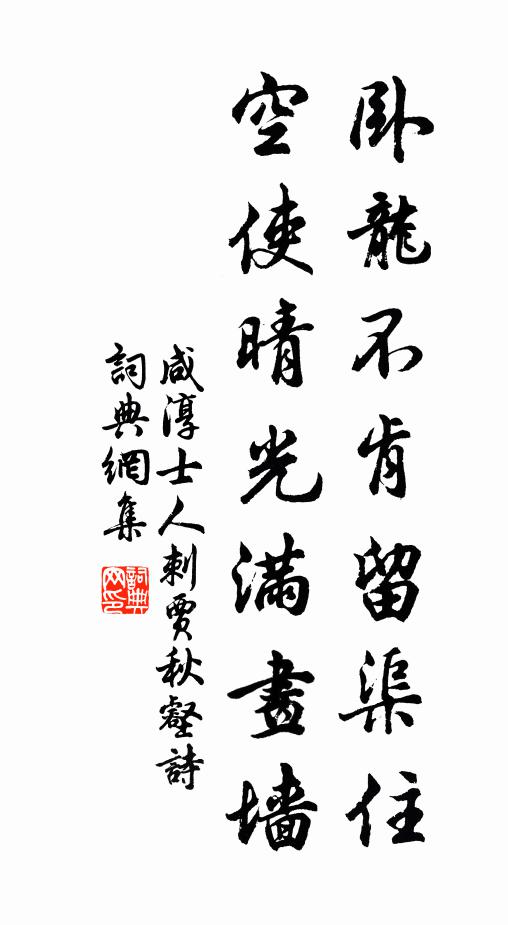 卧龍不肯留渠住
空使晴光滿畫墻
咸淳士人刺賈秋壑詩
詞典網集
詞典网印